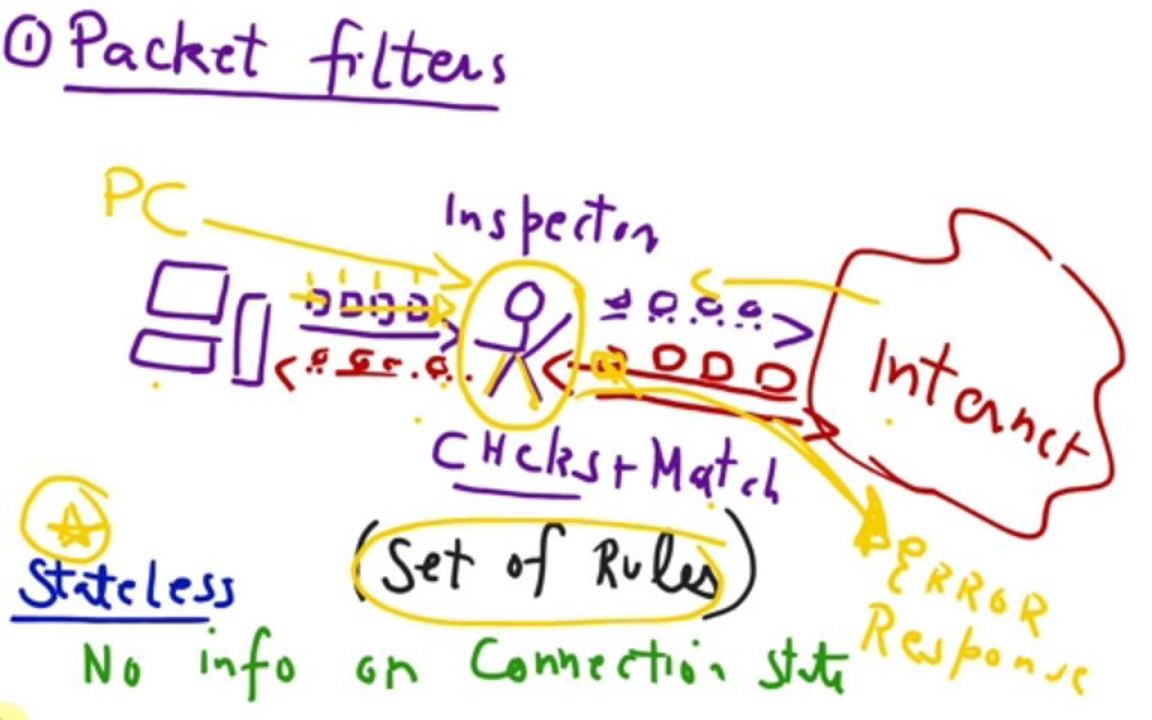 ① Packet filters
PC
Inspector
Internet
CHcks + Match
(Set of Rules)
Stateless
ERROR
Response
No info on Connection state